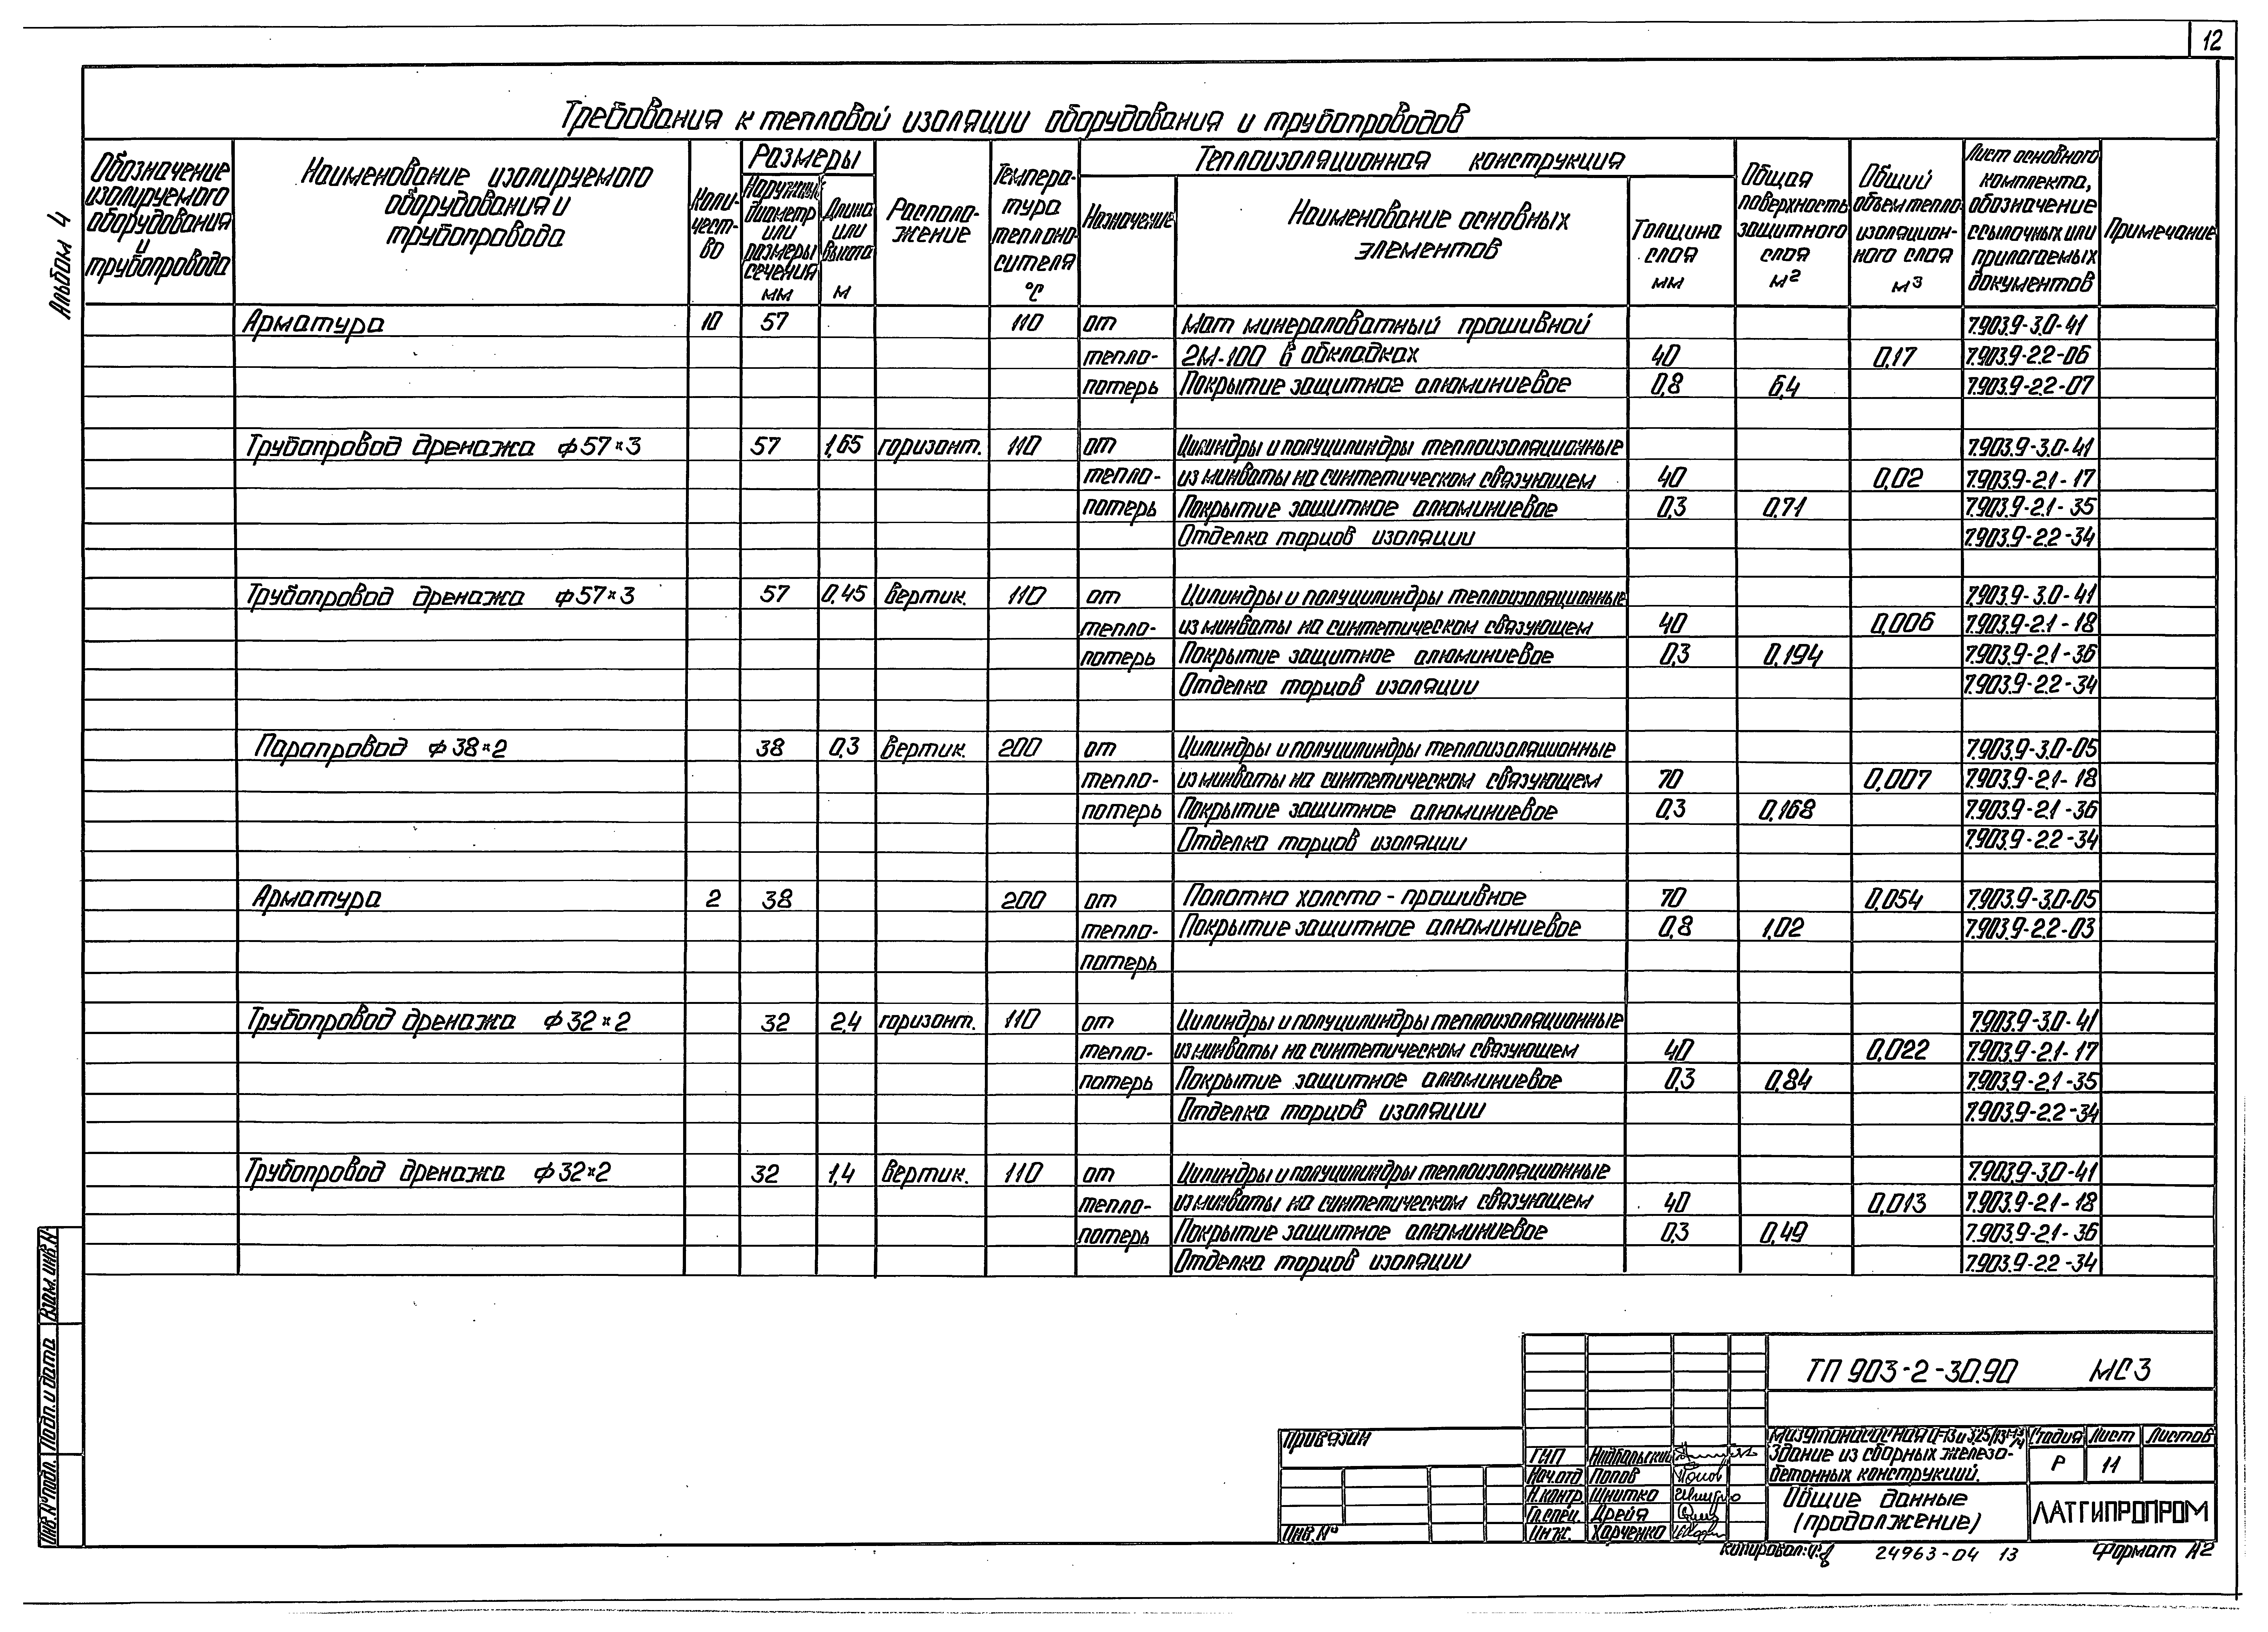 12
Альбом 4
Требования к тепловой изоляции оборудования и трубопроводов
Обозначение изолируемого оборудования и трубопровода
Наименование изолируемого оборудования и трубопровода
Коли-чест-во
Размеры
Наружный диаметр или размеры сечения мм
Длина или высота м
Располо-жение
Темпера-тура теплоно-сителя °С
Теплоизоляционная конструкция
Назначение
Наименование основных элементов
Толщина слоя мм
Общая поверхность защитного слоя м2
Общий объем тепло-изоляцион-ного слоя м3
Лист основного комплекта, обозначение ссылочных или прилагаемых документов
Примечание
Арматура 10 57 110 от Мат минераловатный прошивной 7.903.9-3.0-41
тепло- 2М-100 в обкладках 40 0,17 7.903.9-2.2-06
потерь Покрытие защитное алюминиевое 0,8 6,4 7.903.9-2.2-07
Трубопровод дренажа ф57×3 57 1,65 горизонт. 110 от Цилиндры и полуцилиндры теплоизоляционные 7.903.9-3.0-41
тепло- из минваты на синтетическом связующем 40 0,02 7.903.9-2.1-17
потерь Покрытие защитное алюминиевое 0,3 0,71 7.903.9-2.1-35
Отделка торцов изоляции 7.903.9-2.2-34
Трубопровод дренажа ф57×3 57 0,45 вертик. 110 от Цилиндры и полуцилиндры теплоизоляционные 7.903.9-3.0-41
тепло- из минваты на синтетическом связующем 40 0,006 7.903.9-2.1-18
потерь Покрытие защитное алюминиевое 0,3 0,194 7.903.9-2.1-36
Отделка торцов изоляции 7.903.9-2.2-34
Паропровод ф38×2 38 0,3 вертик. 200 от Цилиндры и полуцилиндры теплоизоляционные 7.903.9-3.0-05
тепло- из минваты на синтетическом связующем 70 0,007 7.903.9-2.1-18
потерь Покрытие защитное алюминиевое 0,3 0,168 7.903.9-2.1-36
Отделка торцов изоляции 7.903.9-2.2-34
Арматура 2 38 200 от Полотно холсто-прошивное 70 0,054 7.903.9-3.0-05
тепло- Покрытие защитное алюминиевое 0,8 1,02 7.903.9-2.2-03
потерь
Трубопровод дренажа ф32×2 32 2,4 горизонт. 110 от Цилиндры и полуцилиндры теплоизоляционные 7.903.9-3.0-41
тепло- из минваты на синтетическом связующем 40 0,022 7.903.9-2.1-17
потерь Покрытие защитное алюминиевое 0,3 0,84 7.903.9-2.1-35
Отделка торцов изоляции 7.903.9-2.2-34
Трубопровод дренажа ф32×2 32 1,4 вертик. 110 от Цилиндры и полуцилиндры теплоизоляционные 7.903.9-3.0-41
тепло- из минваты на синтетическом связующем 40 0,013 7.903.9-2.1-18
потерь Покрытие защитное алюминиевое 0,3 0,49 7.903.9-2.1-36
Отделка торцов изоляции 7.903.9-2.2-34
Взам. инв. №
Подп. и дата
Инв. № подл.
ТП 903-2-30.90 МС3
Привязан
Инв. №
ГИП
Нач.отд Попов
Н.контр Шнитко
Гл.спец. Дрейя
Инж. Харченко
Мазутонасосная
Здание из сборных железо-
бетонных конструкций.
Стадия Лист Листов
Р 11
Общие данные
(продолжение)
ЛАТГИПРОПРОМ
Копировал:
24963-04 13
Формат А2